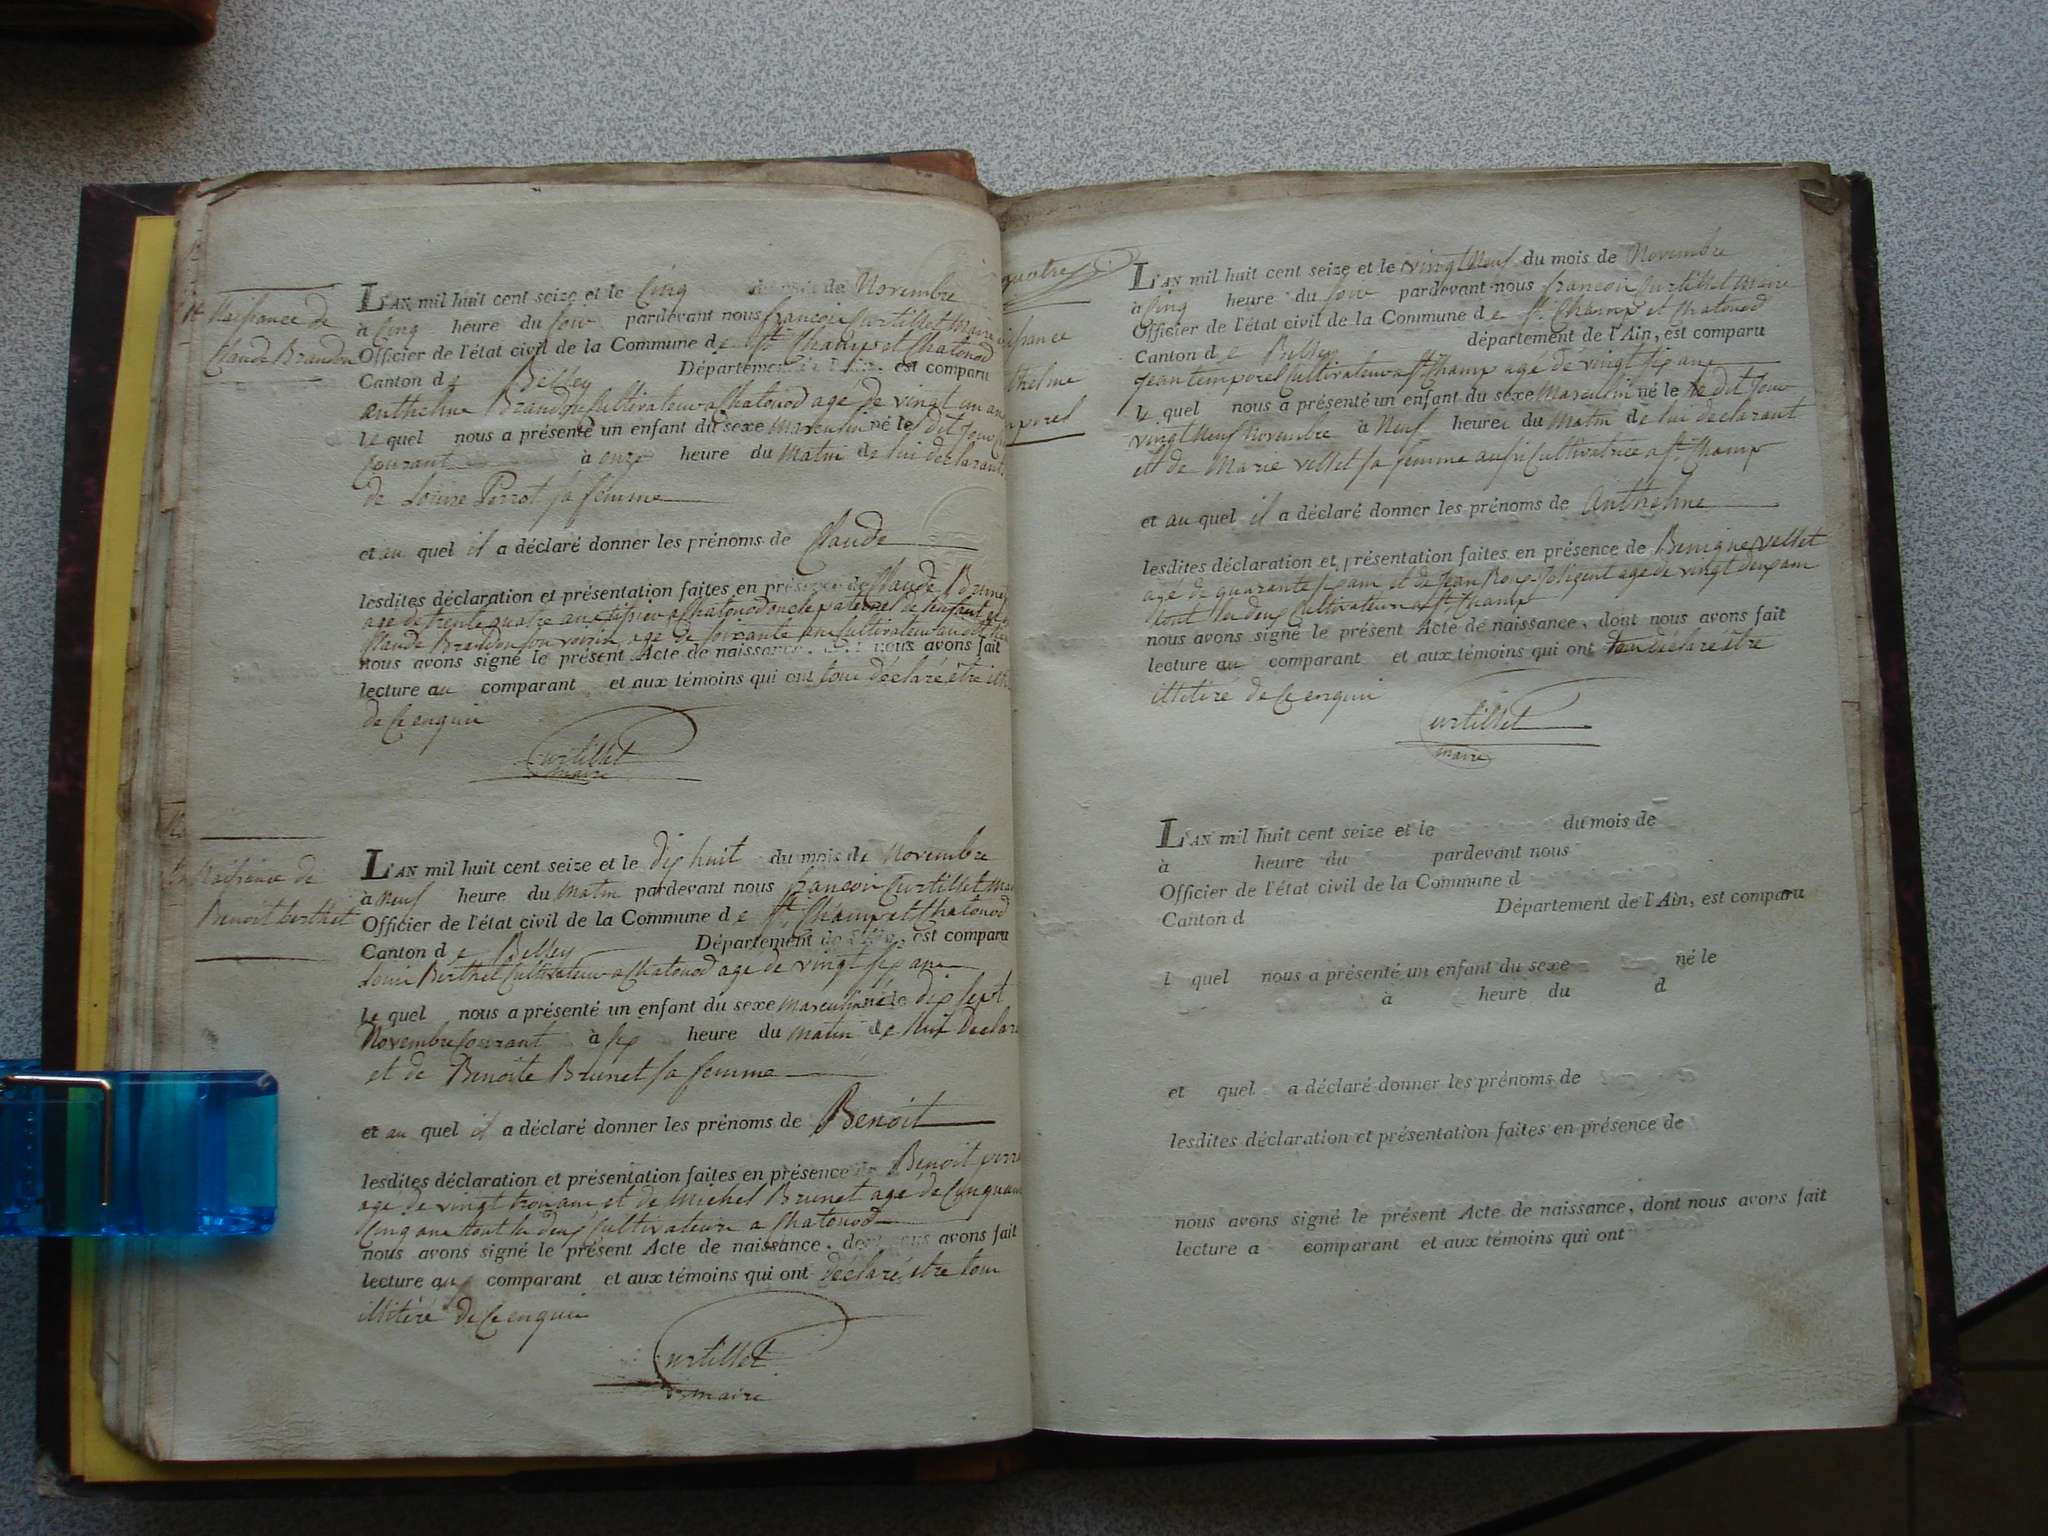 Naissance de
Claude Brandon
L'AN mil huit cent seize et le Cinq du mois de Novembre
à Cinq heure du soir pardevant nous françois Curtillet Maire
Officier de l'état civil de la Commune de St. Champ et Chatonod
Canton de Belley Département de l'Ain, est comparu
anthelme Brandon Cultivateur a Chatonod agé de vingt un an
le quel nous a présenté un enfant du sexe Masculin né le dit jour
Courant à onze heure du Matin de lui declarant
de Louise Perrot sa femme
et au quel il a déclaré donner les prénoms de Claude
lesdites déclaration et présentation faites en présence de Claude
agé de trente quatre ans a Chatonod oncle paternel de l'enfant
Claude Brandon son voisin agé de soixante ans Cultivateur
nous avons signé le présent Acte de naissance, nous avons fait
lecture au comparant et aux témoins qui ont tous déclaré être
de ce enquis
Curtillet
maire
Naissance de
Benoit berthet
L'AN mil huit cent seize et le dix huit du mois de Novembre
à Neuf heure du matin pardevant nous françois Curtillet
Officier de l'état civil de la Commune de St. Champ et Chatonod
Canton de Belley Département de l'Ain, est comparu
Louis Berthet Cultivateur a Chatonod agé de vingt six ans
le quel nous a présenté un enfant du sexe masculin né le dix sept
Novembre Courant à six heure du matin de lui
et de Benoite Brunet sa femme
et au quel il a déclaré donner les prénoms de Benoit
lesdites déclaration et présentation faites en présence de Benoit
agé de vingt trois ans et de Michel Brunet agé de
Cinq ans tout les deux Cultivateurs a Chatonod
nous avons signé le présent Acte de naissance, dont nous avons fait
lecture au comparant et aux témoins qui ont déclaré être tous
illitéré de ce enquis
Curtillet
maire
L'AN mil huit cent seize et le vingt Neuf du mois de Novembre
à Cinq heure du soir pardevant nous françois Curtillet Maire
Officier de l'état civil de la Commune de St. Champ et Chatonod
Canton de Belley département de l'Ain, est comparu
Jean temporel Cultivateur a St Champ agé de vingt six ans
le quel nous a présenté un enfant du sexe Masculin né le dit jour
vingt Neuf Novembre à Neuf heure du Matin de lui declarant
et de Marie vellet sa femme aussi Cultivatrice a St. Champ
et au quel il a déclaré donner les prénoms de Anthelme
lesdites déclaration et présentation faites en présence de Benigne vellet
agé de quarante six ans et de Jean agé de vingt deux ans
tout les deux Cultivateurs a St. Champ
nous avons signé le présent Acte de naissance, dont nous avons fait
lecture au comparant et aux témoins qui ont tous déclaré être
illitéré de ce enquis
Curtillet
maire
L'AN mil huit cent seize et le du mois de
à heure du pardevant nous
Officier de l'état civil de la Commune d
Canton d Département de l'Ain, est comparu
l quel nous a présenté un enfant du sexe né le
à heure du d
et quel a déclaré donner les prénoms de
lesdites déclaration et présentation faites en présence de
nous avons signé le présent Acte de naissance, dont nous avons fait
lecture a comparant et aux témoins qui ont